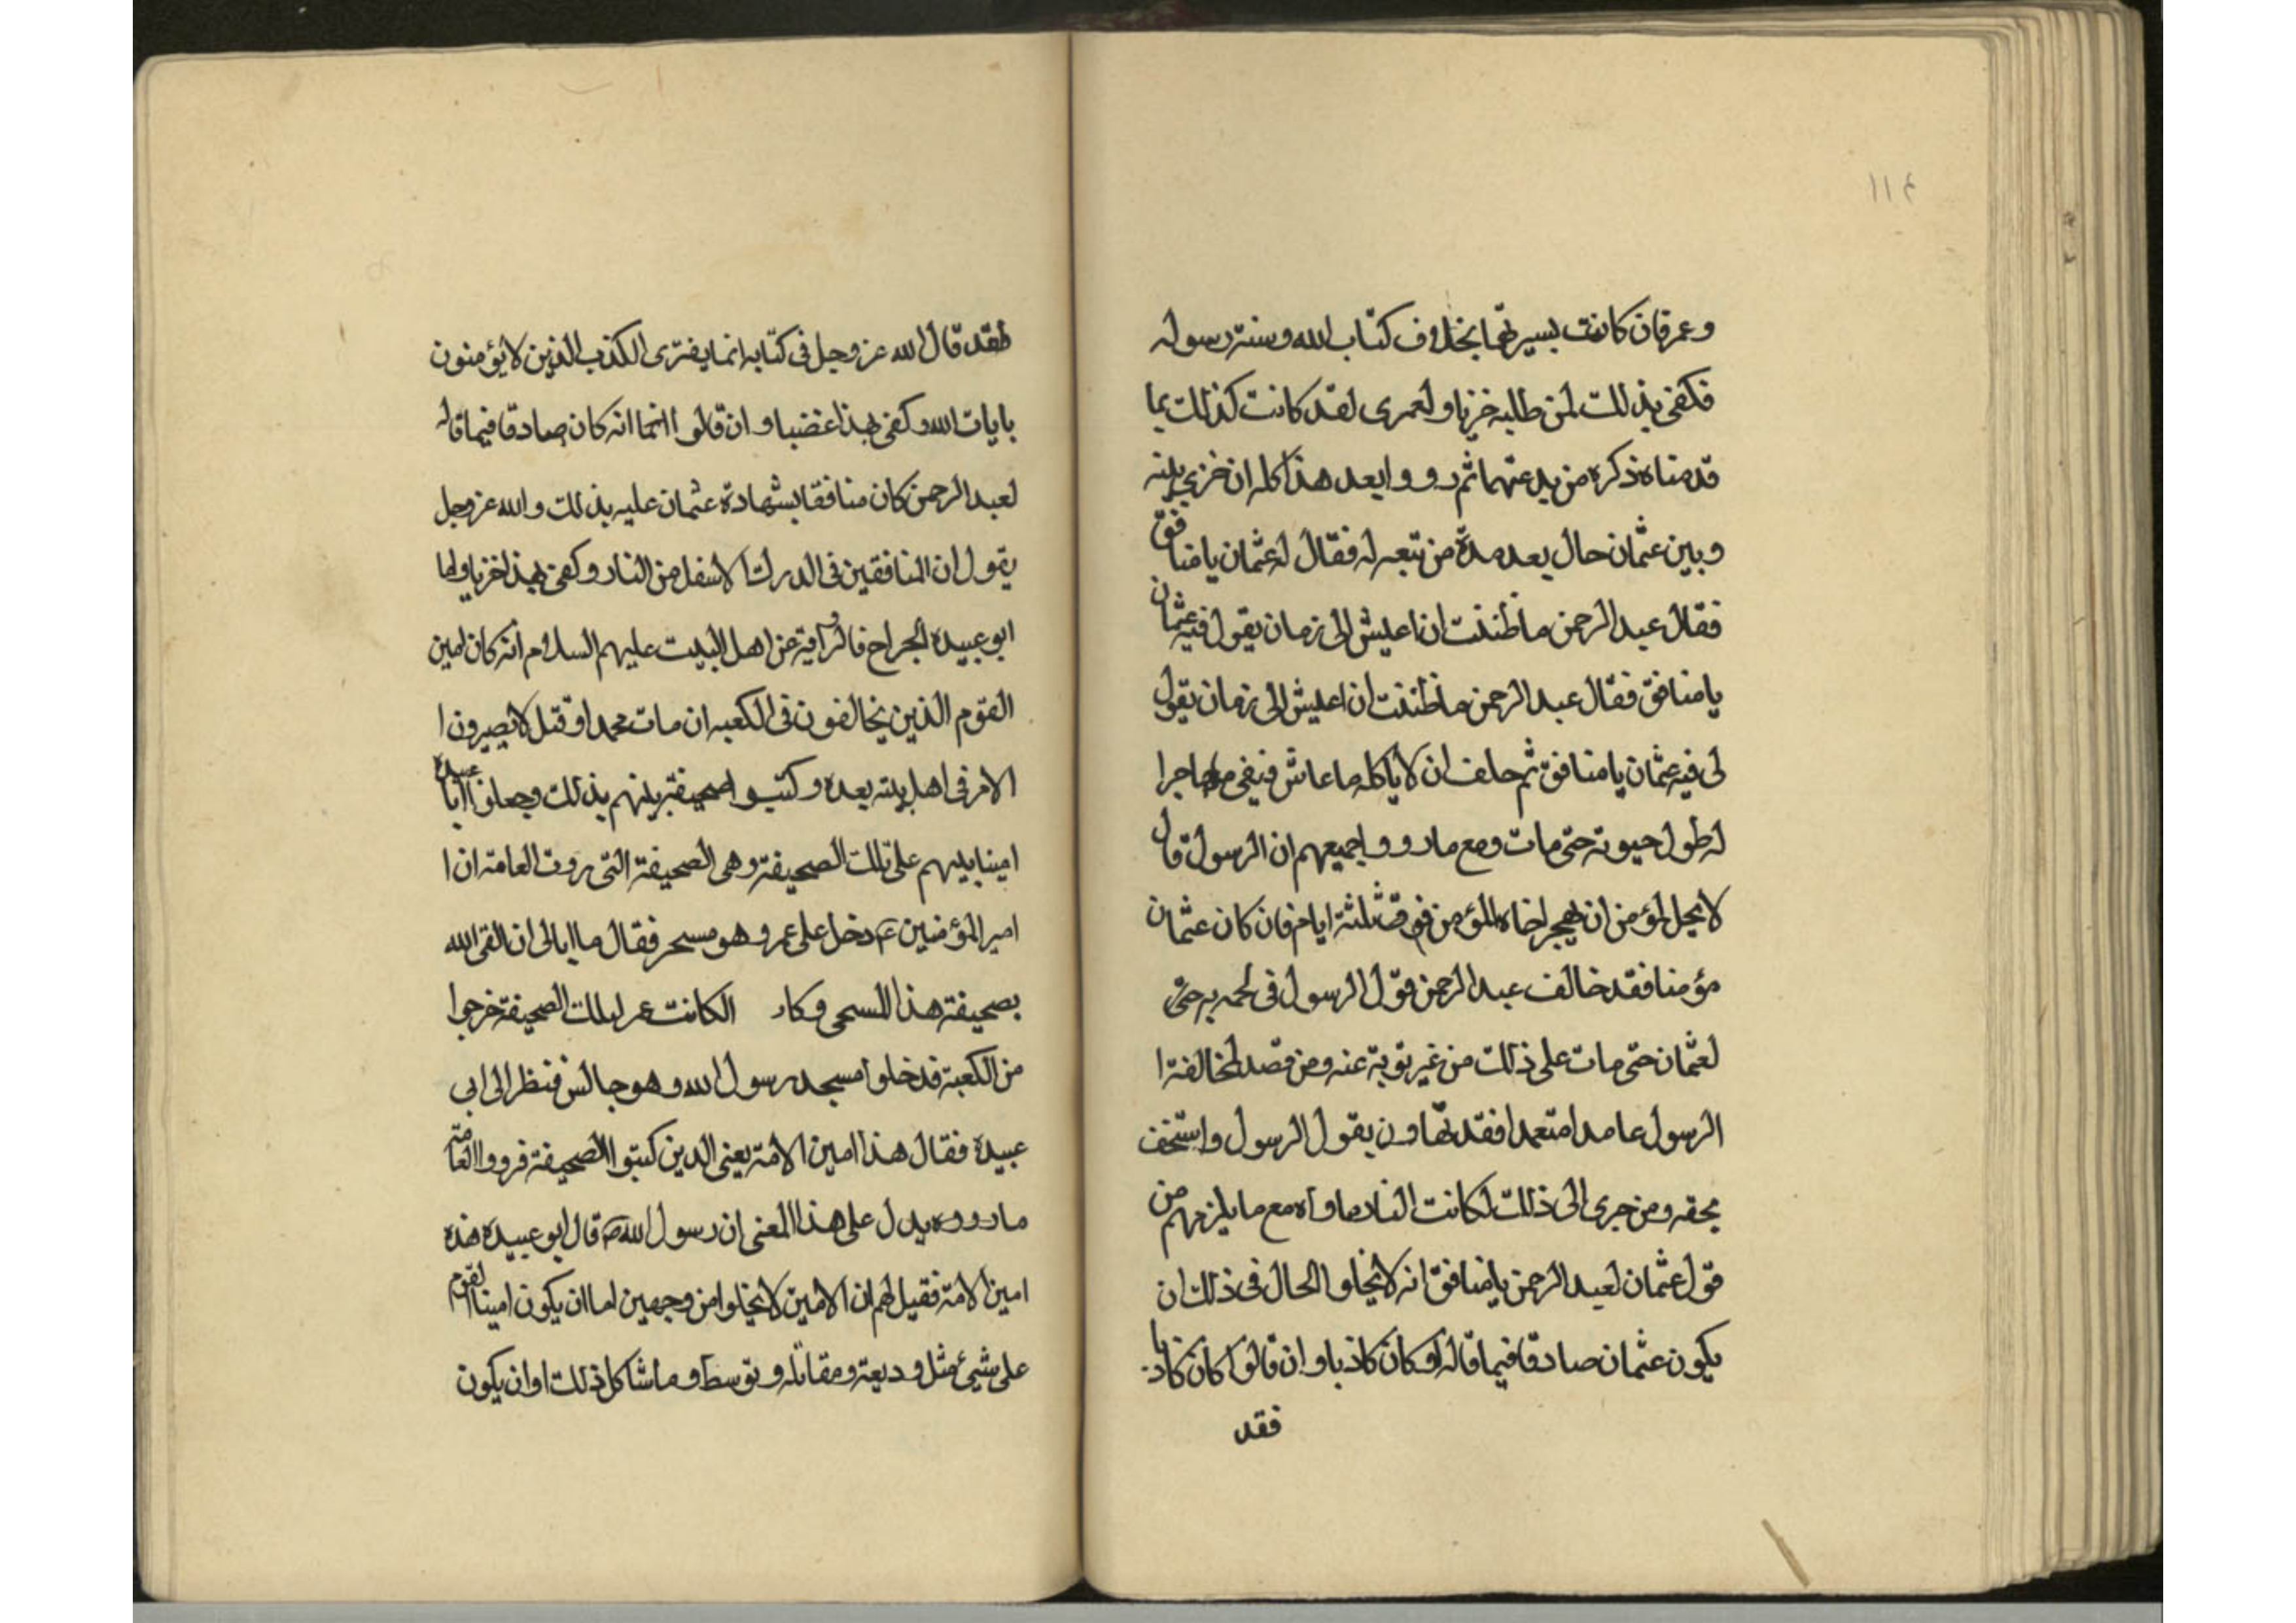 ١١٤
وعمر فان كانت بسيرتهما بخلاف كتاب الله وسنة رسوله
فكفى بذلك لمن طلبه خزيا ولعمرى لقد كانت كذلك بما
قدمناه ذكره من بدعتهما ثم رووا بعد هذا كله ان جرى بينه
وبين عثمان حال بعد مدة من تبعه له فقال له عثمان يا منافق
فقال عبد الرحمن ما ظننت ان اعيش الى زمان يقول فيه عثمان
يا منافق فقال عبد الرحمن ما ظننت ان اعيش الى زمان يقول
لى فيه عثمان يا منافق ثم حلف ان لا ياكله ما عاش فبقى مهاجرا
له طول حيوته حتى مات ومع ما رووا جميعهم ان الرسول قال
لا يحل لمؤمن ان يهجر اخاه المؤمن فوق ثلثة ايام فان كان عثمان
مؤمنا فقد خالف عبد الرحمن قول الرسول فى
لعثمان حتى مات على ذلك من غير توبة عنه ومن قصد لمخالفة ا
الرسول عامدا متعمدا فقد تهاون بقول الرسول واستخف
بحقه ومن جرى الى ذلك لكانت النار ماواه مع ما يلزمهم من
قول عثمان لعبد الرحمن يا منافق انه لا يخلو الحال فى ذلك ان
يكون عثمان صادقا فيما قاله او كان كاذبا وان قالوا كان كاذبا
فقد
فقد قال الله عز وجل فى كتابه انما يفترى الكذب الذين لا يؤمنون
بايات الله وكفى بهذا غضبا وان قالوا انما انه كان صادقا فيما قاله
لعبد الرحمن كان منافقا بشهادة عثمان عليه بذلك والله عز وجل
يقول ان المنافقين فى الدرك الاسفل من النار وكفى بهذا خزيا واما
ابو عبيدة الجراح فالرواية عن اهل البيت عليهم السلام انه كان امين
القوم الذين يخالفون فى الكعبه ان مات محمد او قتل لا يصيرون ا
الامر فى اهل بيته بعده وكتبوا صحيفة بينهم بذلك وجعلوا ابا عبيدة
امينا بينهم على تلك الصحيفة وهى الصحيفة التى روت العامة ان ا
امير المؤمنين ع دخل على عمر وهو مسجى فقال ما ابالى ان القى الله
بصحيفة هذا المسجى وكان الكاتب عمر لتلك الصحيفة خرجوا
من الكعبة فدخلوا مسجد رسول الله وهو جالس فنظر الى ابى
عبيدة فقال هذا امين الامة يعنى الذين كتبوا الصحيفة فرووا العامة
ما رووه يدل على هذا المعنى ان رسول الله ص قال ابو عبيدة هذه
امين الامة فقيل لهم ان الامين لا يخلوا من وجهين اما ان يكون امينا لقوم
على شيئ مثل وديعة ومقابله وتوسط وما شاكل ذلك او ان يكون